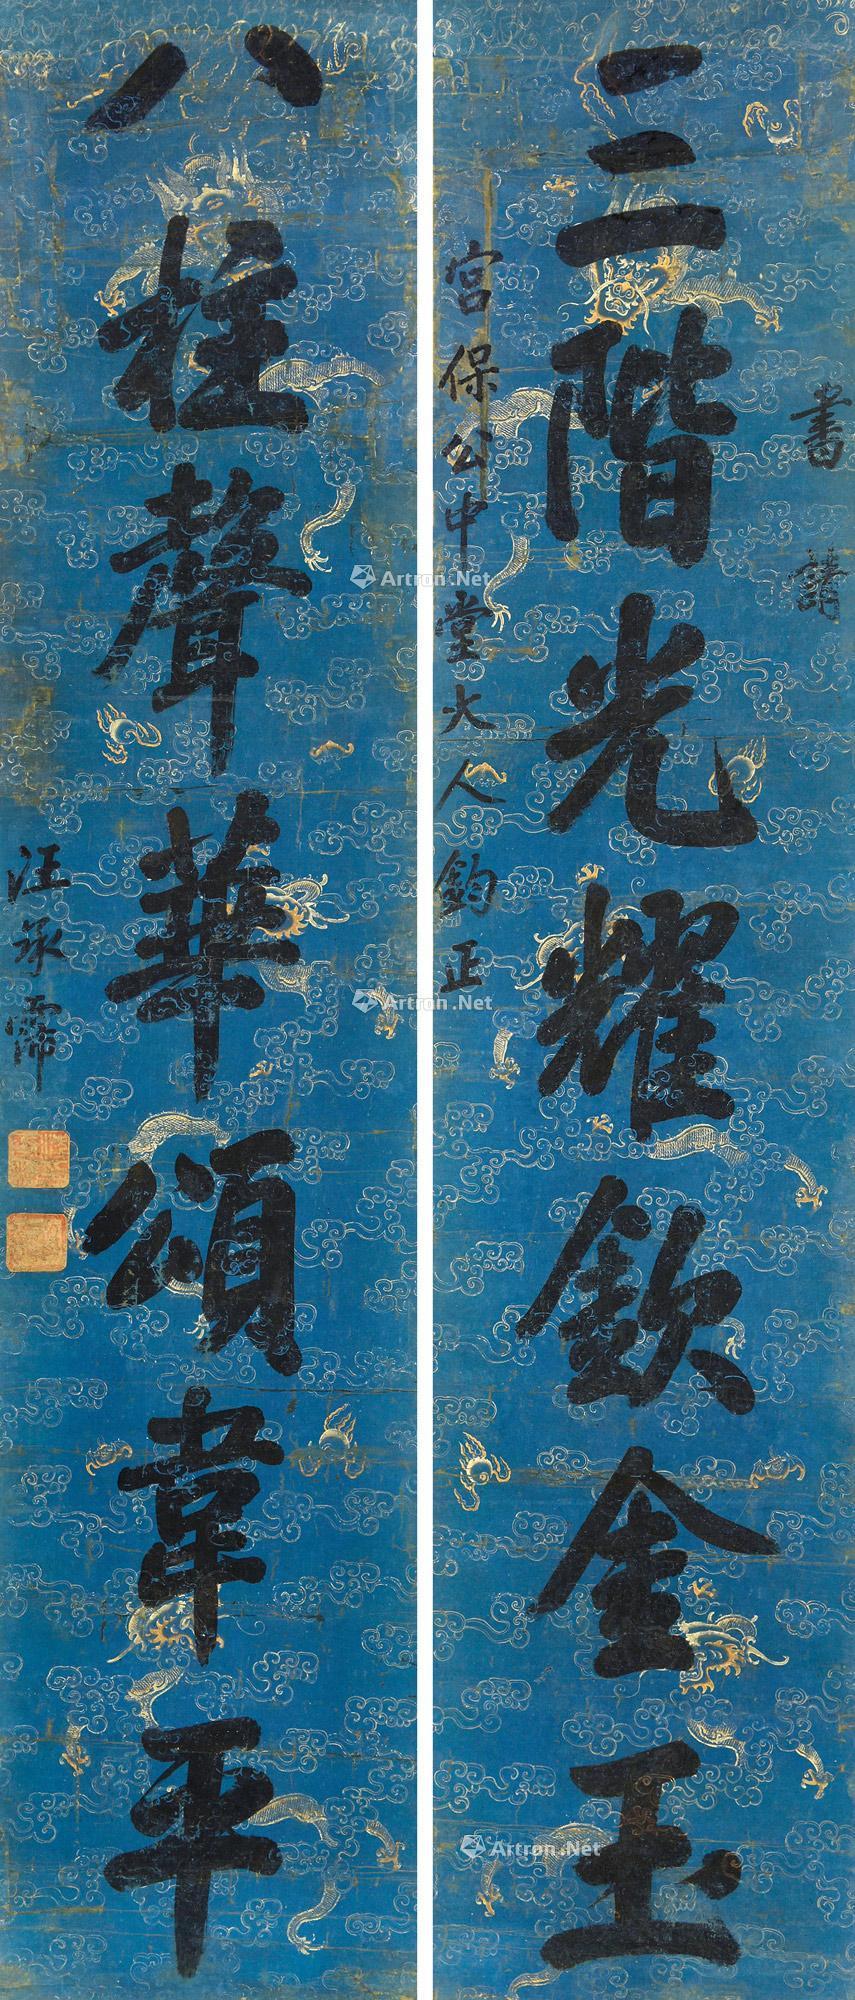 三階光耀欽金玉
書請
宮保公中堂大人鈞正
八柱聲華頌韋平
汪承霈
Artron.Net
Artron.Net
Artron.Net